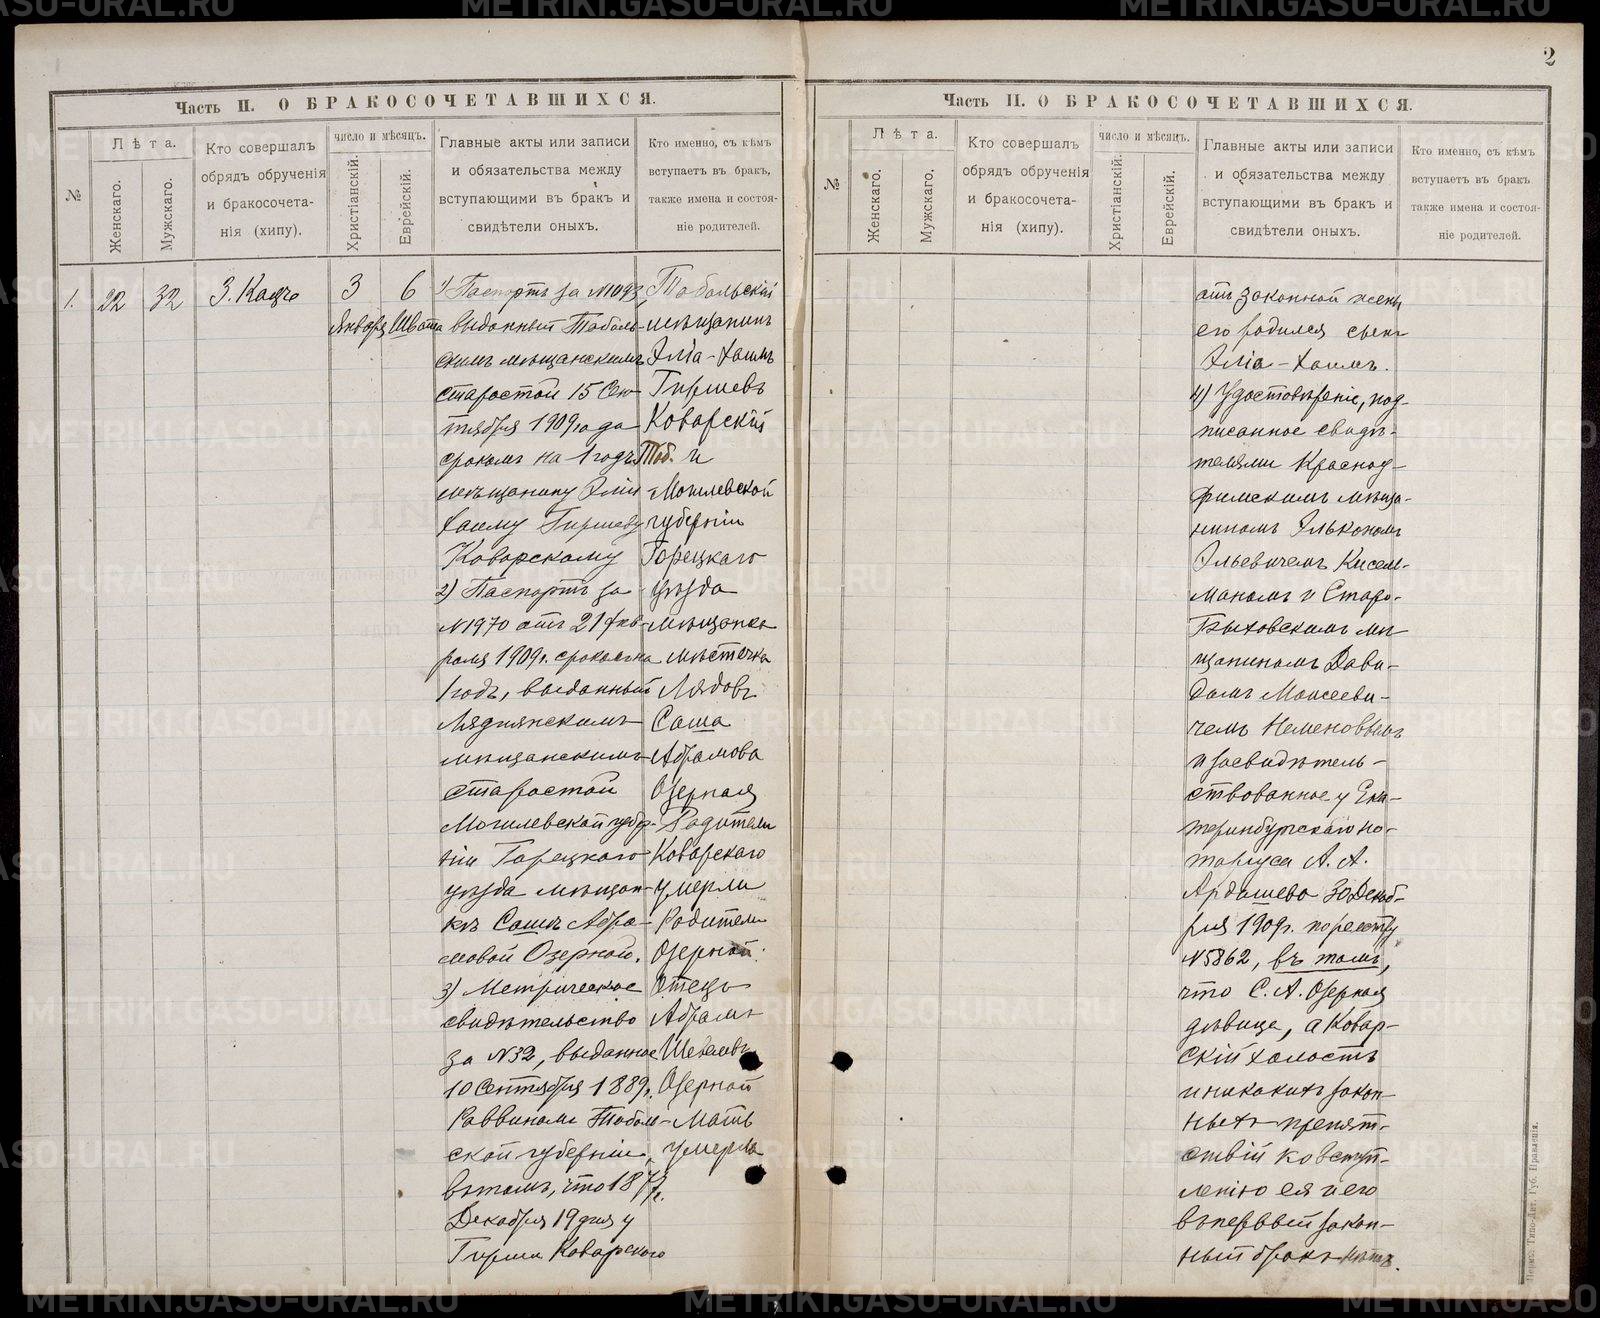 2
Часть II. О БРАКОСОЧЕТАВШИХСЯ.
№
Лѣта.
Женскаго.
Мужскаго.
Кто совершалъ
обрядъ обрученія
и бракосочета-
нія (хипу).
число и мѣсяцъ.
Христіанскій.
Еврейскій.
Главные акты или записи
и обязательства между
вступающими въ бракъ и
свидѣтели оныхъ.
Кто именно, съ кѣмъ
вступаетъ въ бракъ,
также имена и состоя-
ніе родителей.
1.
22
32
З. Кацъ
3
Января
6
Швата
1) Паспортъ за №1093,
выданный Тоболь-
скимъ мѣщанскимъ
старостой 15 Сен-
тября 1909 года
срокомъ на 1 годъ
мѣщанину Эліи
Хаиму Гиршеву
Коварскому
2) Паспортъ за
№1970 отъ 21 фев-
раля 1909 г. срокомъ на
1 годъ, выданный
Ляднянскимъ
мѣщанскимъ
старостой
Могилевской губер-
ніи Горецкаго
уѣзда мѣщан-
кѣ Сашѣ Абра-
мовой Озерной.
3) Метрическое
свидѣтельство
за №32, выданное
10 Сентября 1889 г.
Раввиномъ Тоболь-
ской губерніи,
въ томъ, что 1877 г.
Декабря 19 дня у
Гирши Коварскаго
Тобольскій
мѣщанинъ
Эліа-Хаимъ
Гиршевъ
Коварскій
Тоб. и
Могилевской
губерніи
Горецкаго
уѣзда
мѣщанка
мѣстечка
Лядовъ
Саша
Абрамова
Озерная
Родители
Коварскаго
умерли
Родители
Озерной:
Отецъ
Абрамъ
Шевелевъ
Озерной
Мать
умерла
Часть II. О БРАКОСОЧЕТАВШИХСЯ.
№
Лѣта.
Женскаго.
Мужскаго.
Кто совершалъ
обрядъ обрученія
и бракосочета-
нія (хипу).
число и мѣсяцъ.
Христіанскій.
Еврейскій.
Главные акты или записи
и обязательства между
вступающими въ бракъ и
свидѣтели оныхъ.
Кто именно, съ кѣмъ
вступаетъ въ бракъ
также имена и состоя-
ніе родителей.
отъ законной жены
его родился сынъ
Эліа-Хаимъ.
4) Удостовѣреніе, под-
писанное свидѣ-
телями Красноу-
фимскимъ мѣща-
ниномъ Элькономъ
Эльевичемъ Кисель-
маномъ и Старо-
Быховскимъ мѣ-
щаниномъ Дави-
домъ Моисееви-
чемъ Неменовымъ
и засвидѣтель-
ствованное у Ека-
теринбургскаго но-
таріуса А. А.
Ардашева 30 Декаб-
ря 1909 г. по реестру
№5862, въ томъ,
что С. А. Озерная
дѣвица, а Ковар-
скій холостъ
и никакихъ закон-
ныхъ препят-
ствій ко вступ-
ленію ея и его
въ первый закон-
ный бракъ нѣтъ.
Перм. Типо-Лит. Губ. Правленія.
METRIKI.GASO-URAL.RU